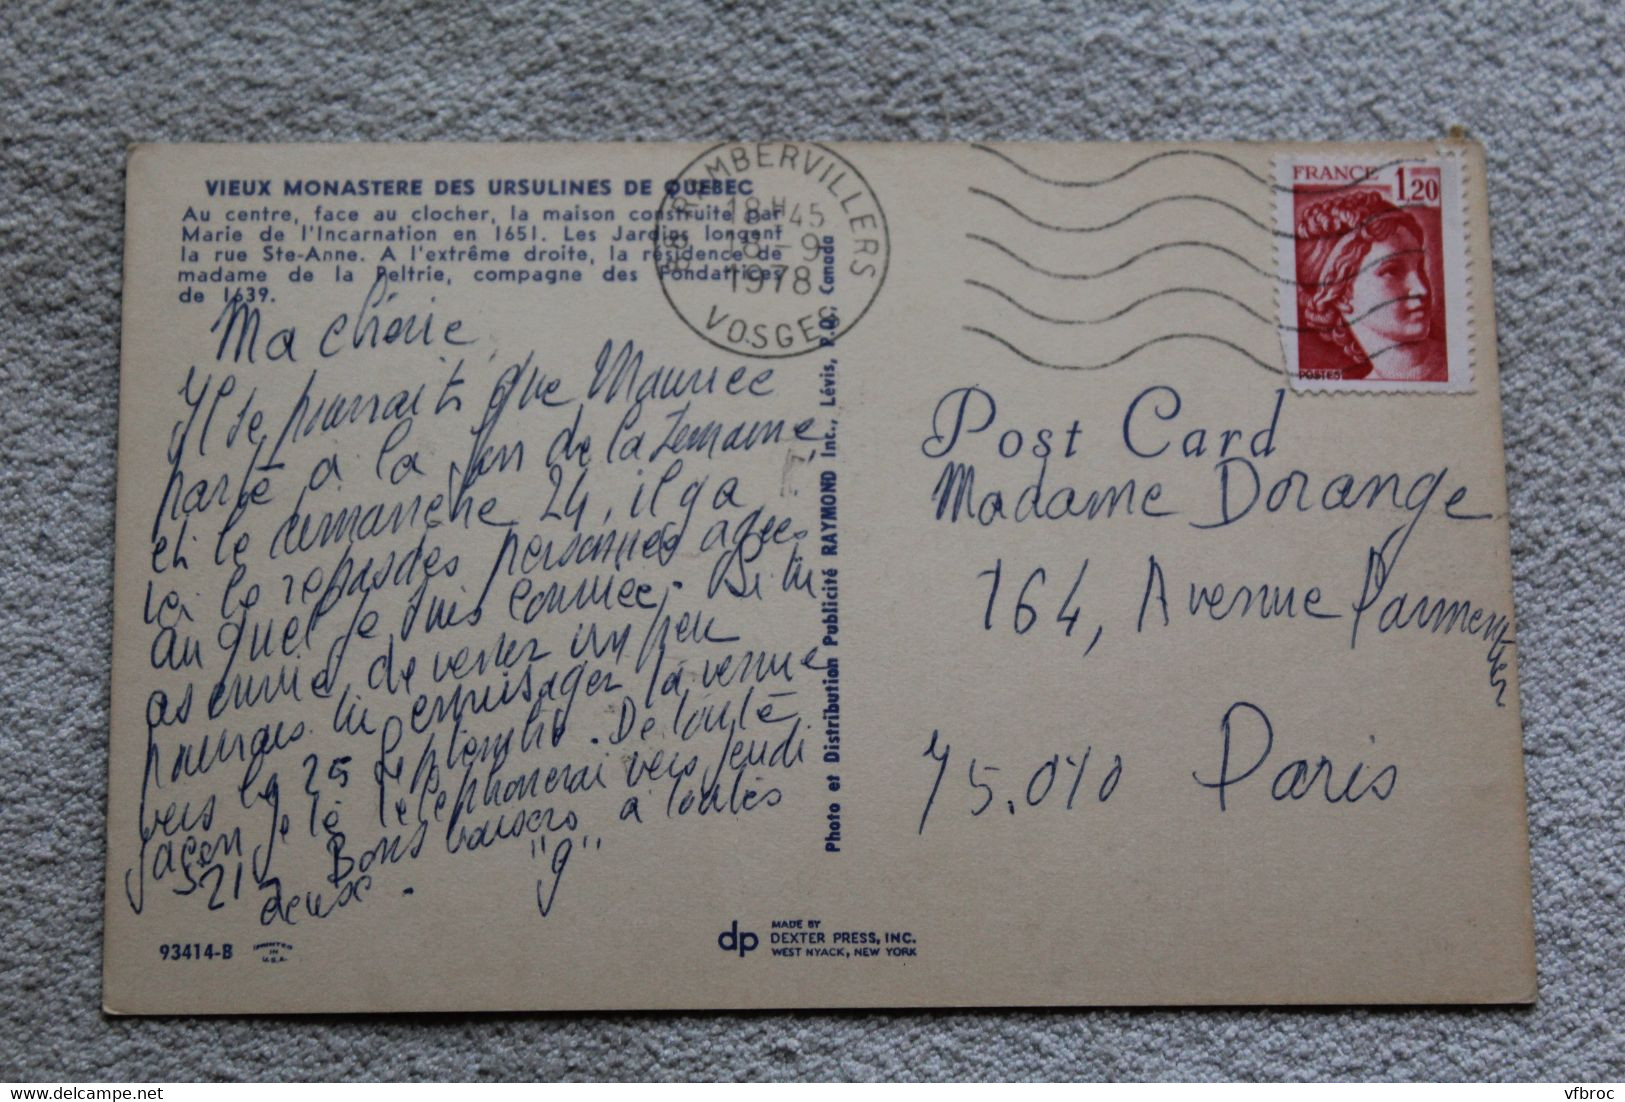 VIEUX MONASTERE DES URSULINES DE QUEBEC
Au centre, face au clocher, la maison construite par
Marie de l'Incarnation en 1651. Les Jardins longent
la rue Ste-Anne. A l'extrême droite, la résidence de
madame de la Peltrie, compagne des Fondatrices
de 1639.
88 RAMBERVILLERS
18H45
18-9
1978
VOSGES
FRANCE 1,20
POSTES
Ma chérie
Il se pourrait que Maurice
parte à la fin de la semaine
et le dimanche 24, il y a
ici le repas des personnes agées
auquel je suis conviée. Si tu
as envie de venir un peu
pourrais tu envisager la venue
vers le 25 septembre. De toute
façon je te téléphonerai vers jeudi
21. Bons baisers à toutes
deux. "g"
Photo et Distribution Publicité RAYMOND Inc., Lévis, P.Q., Canada
Post Card
Madame Dorange
164, Avenue Parmentier
75.010 Paris
93414-B
PRINTED
IN
U.S.A.
dp
MADE BY
DEXTER PRESS, INC.
WEST NYACK, NEW YORK
vfbroc